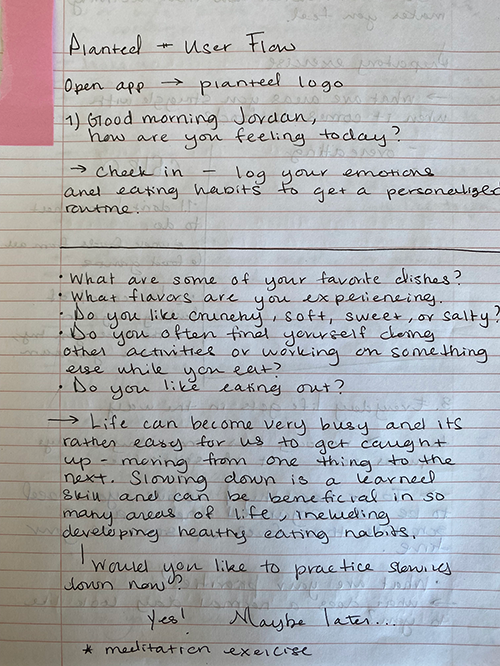 Planted + User Flow
Open app → planted logo
1) Good morning Jordan,
how are you feeling today?
→ Check in – log your emotions
and eating habits to get a personalized
routine.
• What are some of your favorite dishes?
• What flavors are you experiencing.
• Do you like crunchy, soft, sweet, or salty?
• Do you often find yourself doing
other activities or working on something
else while you eat?
• Do you like eating out?
→ Life can become very busy and its
rather easy for us to get caught
up – moving from one thing to the
next. Slowing down is a learned
skill and can be beneficial in so
many areas of life, including
developing healthy eating habits.
Would you like to practice slowing
down now?
Yes! Maybe later...
* meditation exercise